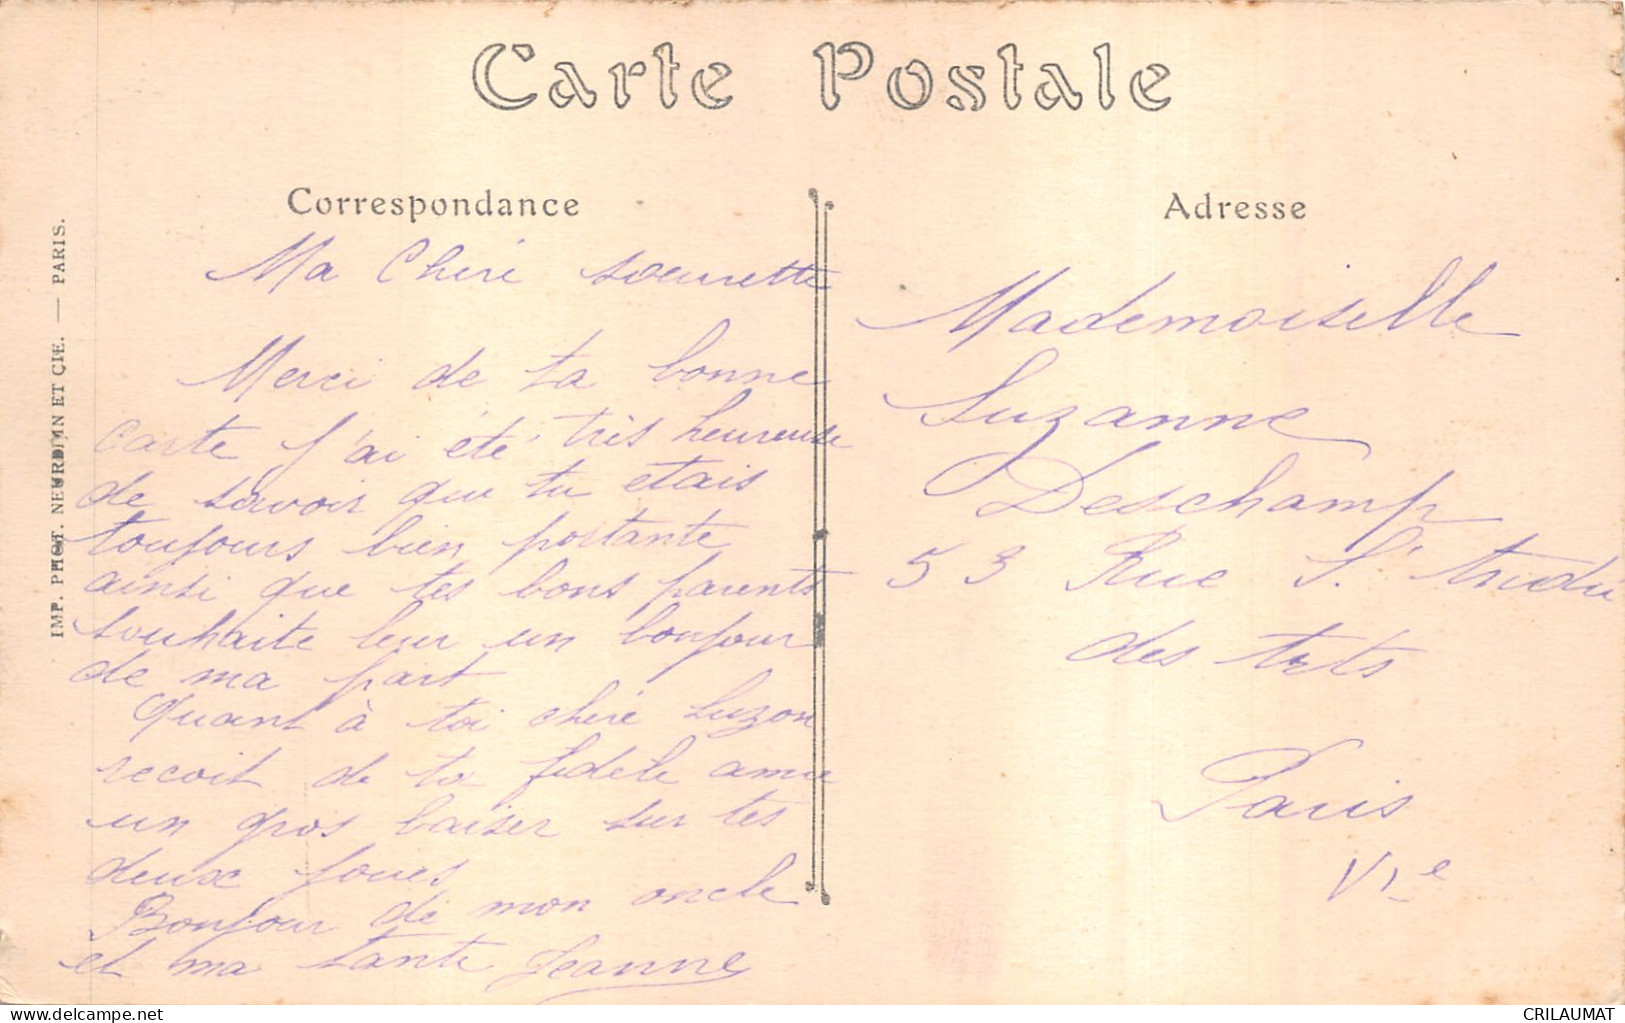 Carte Postale
Correspondance
Ma Chéri soeurette
Merci de ta bonne
carte j'ai été très heureuse
de savoir que tu étais
toujours bien portante
ainsi que tes bons parents
souhaite leur un bonjour
de ma part
Quant à toi chère Suzon
recoit de ta fidele amie
un gros baiser sur tes
deux joues
Bonjour de mon oncle
et ma tante Jeanne
Adresse
Mademoiselle
Suzanne
Deschamp
53 Rue S.' André
des Arts
Paris
VIe
IMP. PHOT. NEURDEIN ET CIE. — PARIS.
delcampe.net
CRILAUMAT